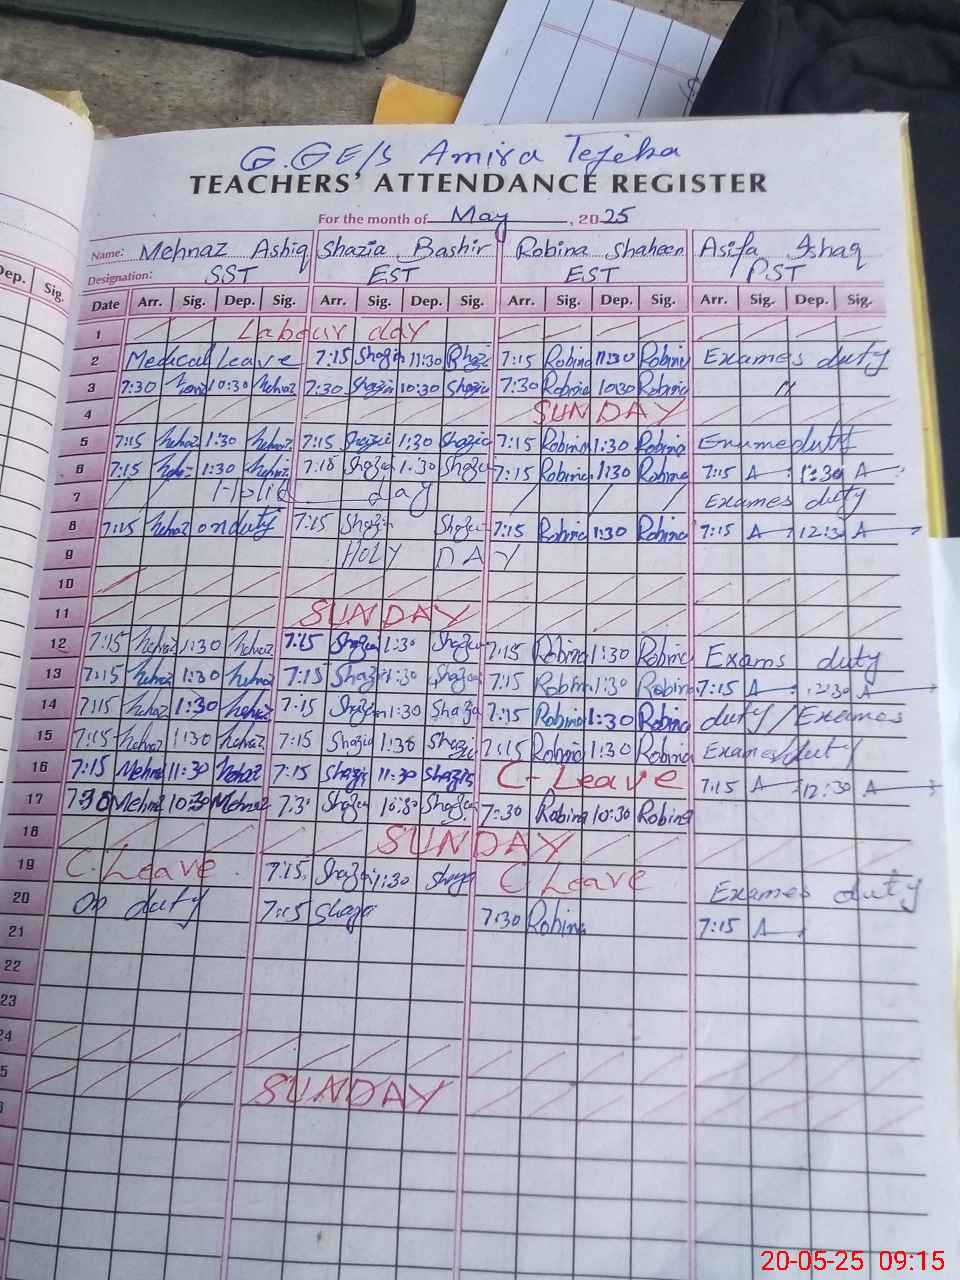 G.GE/S Amira Tejeka
TEACHERS' ATTENDANCE REGISTER
For the month of May, 2025
Name: Mehnaz Ashiq Shazia Bashir Robina Shaheen Asifa Ishaq
Designation: SST EST EST PST
Date Arr. Sig. Dep. Sig. Arr. Sig. Dep. Sig. Arr. Sig. Dep. Sig. Arr. Sig. Dep. Sig.
Dep. Sig.
1 Labour day
2 Medical leave 7:15 Shazia 11:30 Shazi 7:15 Robina 11:30 Robina Exames duty
3 7:30 10:30 Mehnaz 7:30 Shazia 10:30 Shazia 7:30 Robina 10:30 Robina "
4 SUNDAY
5 7:15 Mehnaz 1:30 Mehnaz 7:15 Shazia 1:30 Shazia 7:15 Robina 1:30 Robina duty
6 7:15 1:30 7:15 Shazia 1:30 Shazia 7:15 Robina 1:30 Robina 7:15 A 1:30 A
7 Holiday Exames duty
8 7:15 Mehnaz on duty 7:15 Shazia Shazia 7:15 Robina 1:30 Robina 7:15 A 12:30 A
9 HOLY DAY
10
11 SUNDAY
12 7:15 Mehnaz 1:30 Mehnaz 7:15 Shazia 1:30 Shazia 7:15 Robina 1:30 Robina Exams duty
13 7:15 Mehnaz 1:30 Mehnaz 7:15 Shazia 1:30 Shazia 7:15 Robina 1:30 Robina 7:15 A 12:30 A
14 7:15 Mehnaz 1:30 Mehnaz 7:15 Shazia 1:30 Shazia 7:15 Robina 1:30 Robina duty/Exames
15 7:15 Mehnaz 1:30 Mehnaz 7:15 Shazia 1:30 Shazia 7:15 Robina 1:30 Robina Exames duty
16 7:15 Mehna 11:30 Mehnaz 7:15 Shazia 11:30 Shazia C-Leave 7:15 A 12:30 A
17 7:30 Mehna 10:30 Mehnaz 7:3 Shazia 10:30 Shazia 7:30 Robina 10:30 Robina
18 SUNDAY
19 C.Leave 7:15 Shazia 1:30 Shaza C.Leave Exames duty
20 On duty 7:15 Shaza 7:30 Robina 7:15 A
21
22
23
24
5 SUNDAY
6
20-05-25 09:15